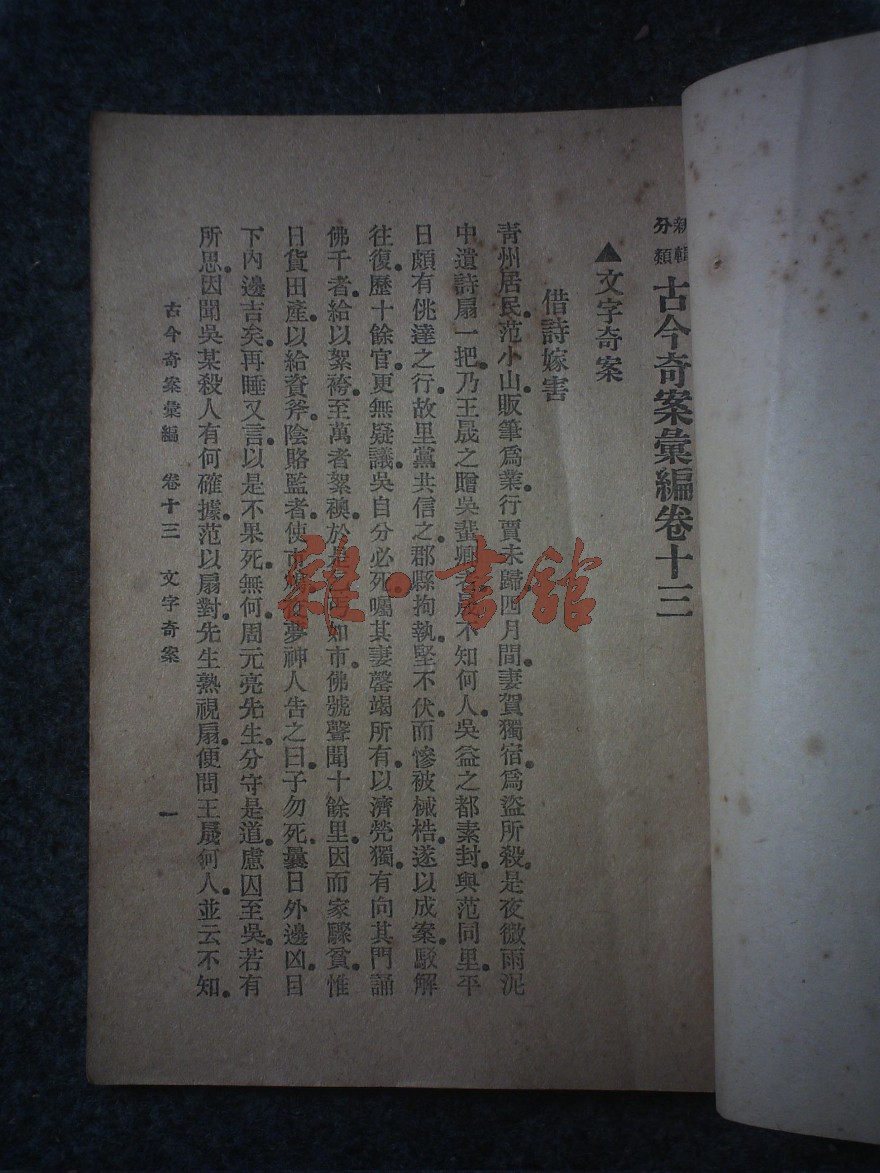 新輯分類 古今奇案彙編卷十三
▲文字奇案
借詩嫁害
青州居民范小山販筆爲業行賈未歸。四月間。妻賀獨宿。爲盜所殺是夜微雨泥
中遺詩扇一把。乃王晟之贈吳蜚卿者。晟不知何人。吳益之都素封。與范同里。平
日頗有佻達之行。故里黨共信之。郡縣拘執。堅不伏。而慘被械梏。遂以成案。駁解
往復。歷十餘官。更無疑議。吳自分必死。囑其妻罄竭所有。以濟煢獨。有向其門誦
佛千者。給以絮袴。至萬者絮襖。於是丐如市。佛號聲聞十餘里。因而家驟貧。惟
日貨田產。以給資斧。陰賂監者。使市夜夢神人告之曰。子勿死。曩日外邊凶。目
下內邊吉矣。再睡又言。以是不果死。無何。周元亮先生。分守是道。慮囚至吳。若有
所思。因聞吳某殺人有何確據。范以扇對。先生熟視扇。便問王晟何人。並云不知。
古今奇案彙編 卷十三 文字奇案 一
雜·書館